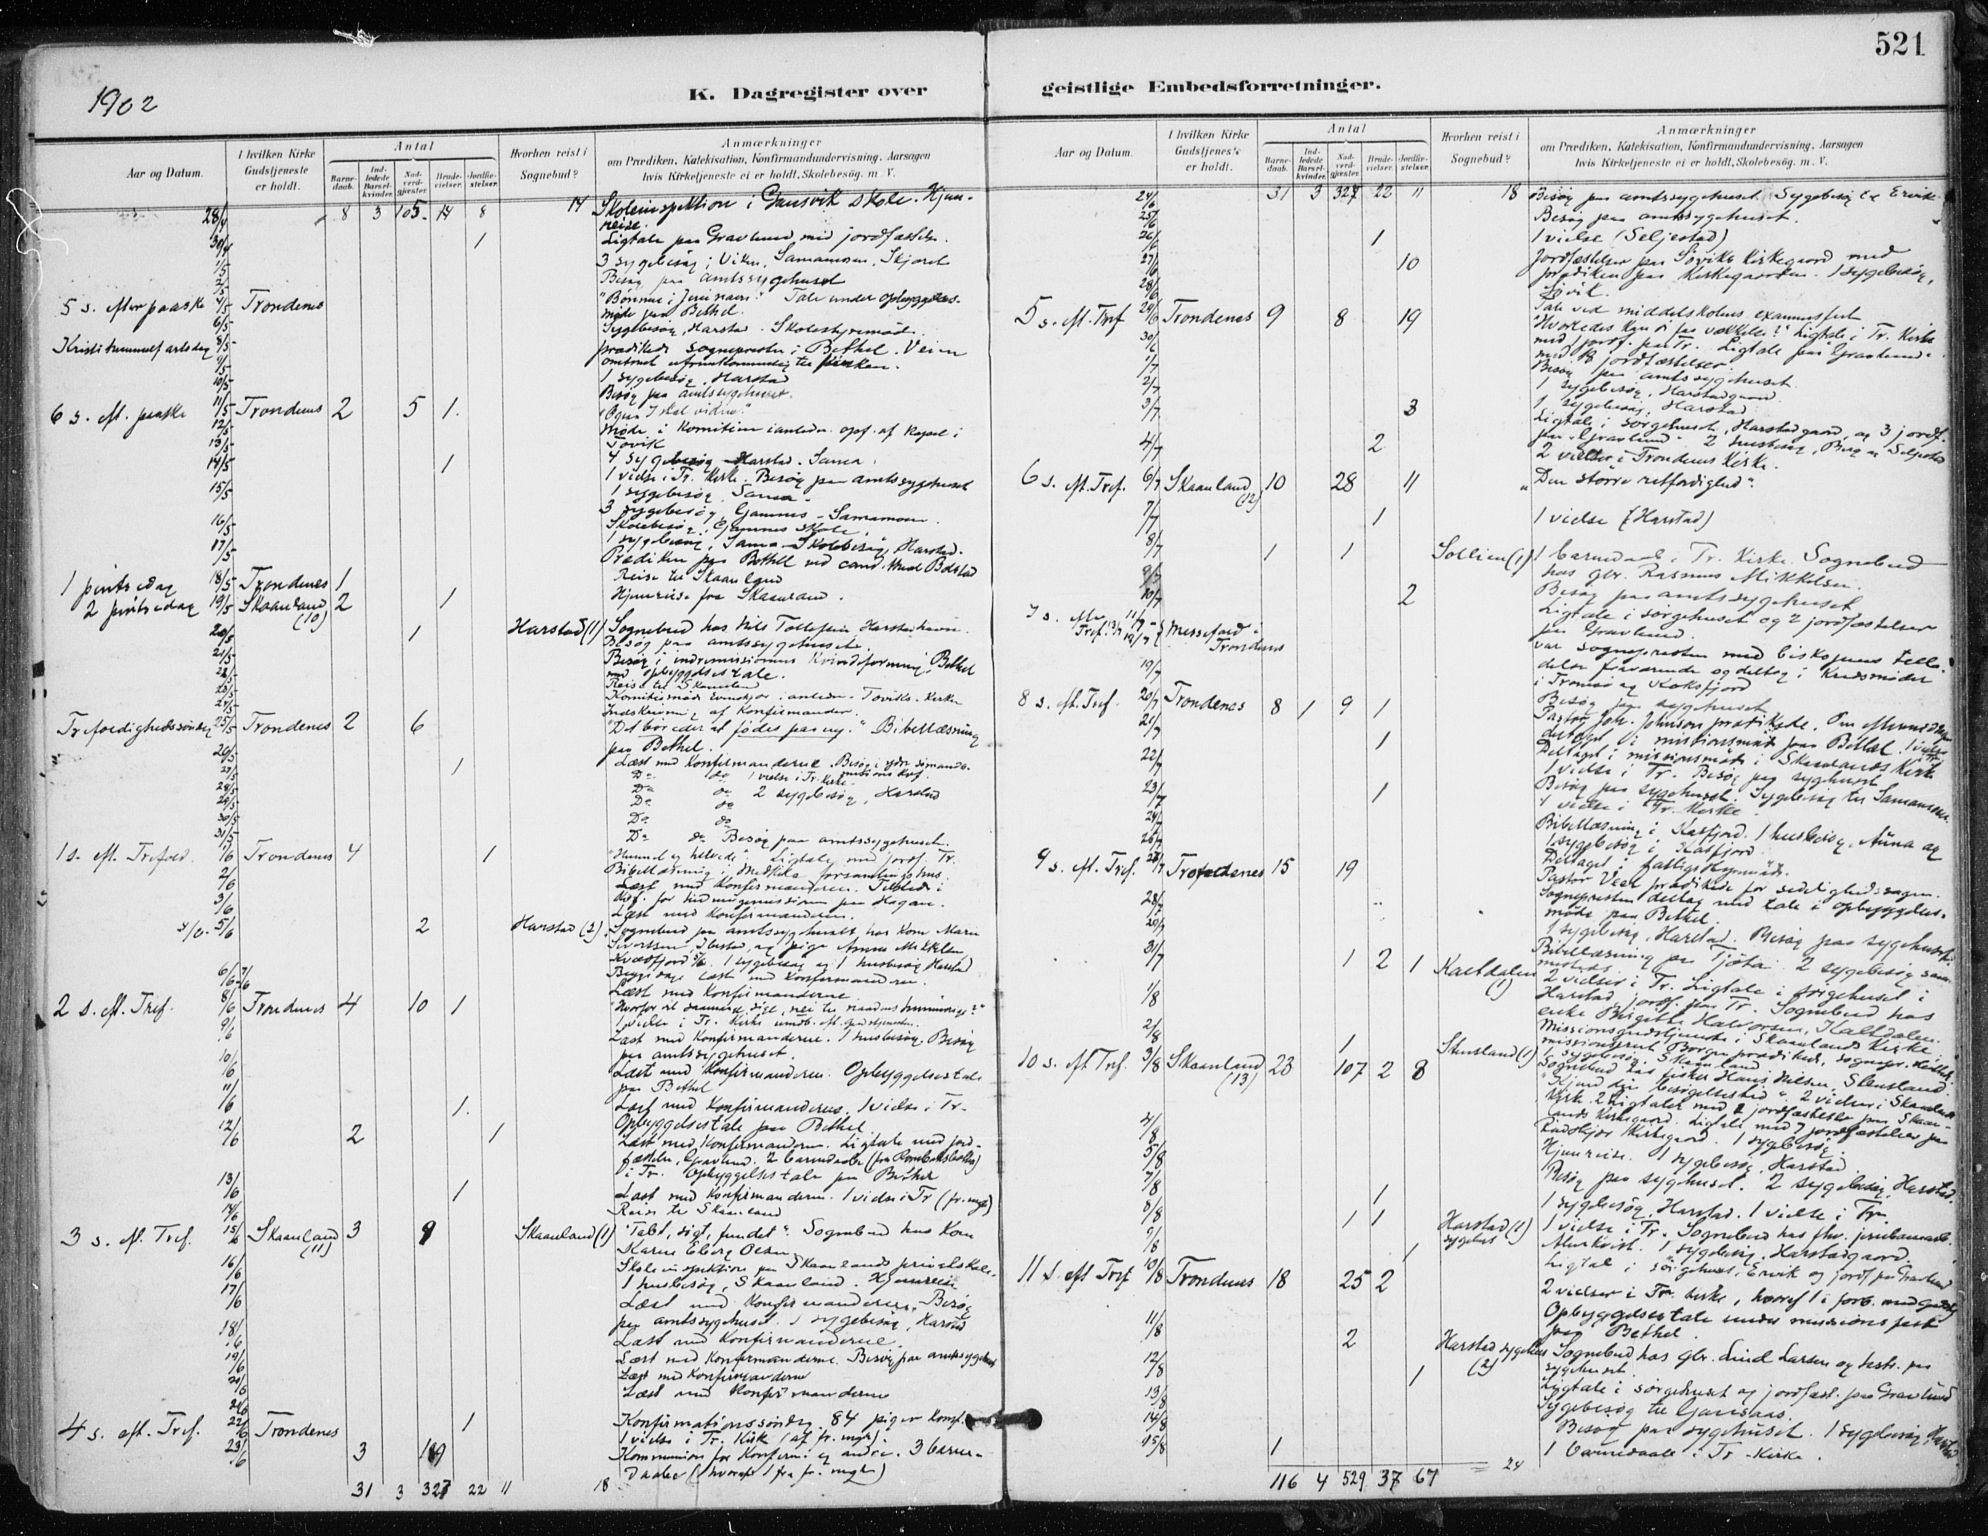 521
1902
K. Dagregister over geistlige Embedsforretninger.
Aar og Datum.
I hvilken Kirke Gudstjeneste er holdt.
Antal
Barne-daab.
Ind-ledede Barsel-kvinder.
Nad-verd-gjester.
Brude-vielser.
Jordfæ-stelser.
Hvorhen reist i Sognebud?
Anmærkninger
om Prædiken, Katekisation, Konfirmandundervisning, Aarsagen
hvis Kirketjeneste ei er holdt, Skolebesøg. m. V.
28/4 8 3 105 14 8 14 Skoleinspektion i Gausvik skole. Hjem-
reise.
30/4 1 Ligtale paa Gravlund med jordfæstelse.
3 sygebesøg i Viken, Samamoen,
Besøg paa amtssygehuset
5 s. efter paaske 4/5 Trondenes "Bønnen i Jesu navn." Tale under opbyggelses-
møde paa Bethel.
Sygebesøg, Harstad. Skolestyremøde.
Kristi himmelfartsdag 8/5 prædikede sognepresten i Bethel. Veien
omtrent ufremkommelig til kirken.
1 sygebesøg, Harstad
Besøg paa amtssygehuset.
6 s. eft. paaske 11/5 Trondenes 2 5 1. "Ogsaa I skal vidne."
12/5 Møde i Komiteen i anledn. opf. af kapel i
Tovik
13/5 4 sygebesøg Harstad. Sama.
14/5 1 1 vielse i Tr. Kirke. Besøg paa amtssygehuset
15/5 1 sygebesøg, Sama.
3 sygebesøg, Gamnes - Samamoen.
16/5 Skolebesøg, Gamnes skole.
17/5 1 sygebesøg, Sama. Skolebesøg, Harstad.
Prædiken paa Bethel ved cand.
1 pintsedag 18/5 Trondenes 1 Reise til Skaanland
2 pintsedag 19/5 Skaanland (10) 2 1 Hjemreise fra Skaanland.
20/5 1 Harstad (1) Sognebud hos Nils Tollefsen Harstadhavn.
21/5 Besøg paa amtssygehuset.
Besøg i indremissionens kvindeforening, Bethel
med opbyggelsestale.
Reise til Skaanland
Komitemøde i anledn. Toviks Kirke
Indskrivning af Konfirmander.
Trefoldighedssøndag 25/5 Trondenes 2 6 "Det bør eder at fødes paa ny." Bibellæsning
paa Bethel.
26/5 Læst med Konfirmanderne.
27/5 1 Do do 1 vielse i Tr. Kirke
28/5 Do do 2 sygebesøg, Harstad
29/5 Do do
30/5 Do do
31/5 Do do Besøg paa amtssygehuset.
1 s. eft. Trefold. 1/6 Trondenes 4 1 "Himmel og helvede". Ligtale med jordf. Tr.
2/6 Bibellæsning i Medkila forsamlingshus.
Læst med Konfirmanderne. Tilstede i
3/6 Kvf. for hedningemissionen paa Hagan.
Læst med Konfirmanderne.
4/6 - 5/6 2 Harstad (2). Sognebud paa amtssygehuset hos Kone Maren
Sivertsen Ibestad og pige Anna Mikkelsen
Kvæfjord 5/6. 1 sygebesøg og 1 husbesøg Harstad
6/6-7/6 Begge dage læst med Konfirmanderne.
Læst med Konfirmanderne
2 s. eft. Tref. 8/6 Trondenes 4 10 1
9/6 1 vielse i Tr. Kirke
Læst med Konfirmanderne. 1 husbesøg. Besøg
paa amtssygehuset.
10/6 Læst med Konfirmanderne. Opbyggelsestale
paa Bethel
11/6 1. Læst med Konfirmanderne. 1 vielse i Tr.
Opbyggelsestale paa Bethel.
12/6 2 1 Læst med Konfirmanderne. Ligtale med jord-
fæstelse, Gravlund. 2 barnedaab
i Tr. Opbyggelsestale paa Bethel
13/6 1 Læst med Konfirmanderne. 1 vielse i Tr (fr. mgh)
14/6 Reise til Skaanland
3 s. eft. Tref. 15/6 Skaanland (11) 3 9 Skaanland (1) "Tabt, søgt, fundet". Sognebud hos Kone
Karen Olsen
16/6 Skoleinspektion paa Skaanlands privatskole.
1 husbesøg, Skaanland. Hjemreise
17/6 Læst med Konfirmanderne. Besøg
paa amtssygehuset. 1 sygebesøg, Harstad
18/6 Læst med Konfirmanderne.
19/6 Læst med Konfirmanderne. Besøg paa amtssygehuset
20/6 Læst med Konfirmanderne
21/6 Læst med Konfirmanderne
4 s. eft. Tref. 22/6 Trondenes 1 Konfirmationssøndag. 84 piger konf.
1 vielse i Tr. Kirke (af fr. mgh.)
23/6 3 Kommunion for Konfirm. og andre. 3 barne-
daabe (hvoraf 1 fra fr. mgh)
31 3 327 22 11 18
24/6 31 3 327 22 11 18 Besøg paa amtssygehuset. Sygebesøg til Ervik
25/6 Besøg paa amtssygehuset.
26/6 1 1 vielse (Seljestad)
27/6 10 Jordfæstelse paa Sørvik Kirkegaard med
prædiken paa Kirkegaarden. 1 sygebesøg,
28/6 Sørvik.
Tale ved middelskolens examensfest
5 s. eft. Tref 29/6 Trondenes 9 8 19 "Hvorledes kan vi faa vækkelse?" Ligtale i Tr. Kirke
30/6 med jordf. paa Tr. Ligtale paa Gravlund
med 18 jordfæstelser.
1/7 Besøg paa amtssygehuset.
2/7 1 sygebesøg, Harstadgaard.
1 sygebesøg, Harstad
3/7 3 Ligtale i sørgehuset, Harstadgaard og 3 jordf.
paa Gravlund. 2 husbesøg, Berg og Seljestad
4/7 2 2 vielser i Trondenes Kirke.
6 s. eft. Tref. 6/7 Skaanland (12) 10 28 11 "Den større retfærdighed".
7/7 1 1 vielse (Harstad)
8/7 1 1 Sollien (1) 1 barnedaab i Tr. Kirke. Sognebud
hos gbr. Rasmus Mikkelsen.
9/7 Besøg paa amtssygehuset
10/7 2 Ligtale i sørgehuset og 2 jordfæstelser
paa Gravlund.
7 s. efter Tref. 13/7 Messefald i Trondenes var sognepresten med biskopens tilla-
delse fraværende og deltog i Kredsmøder
i Tromsø og Kaksfjord
19/7 Besøg paa sygehuset
8 s. eft. Tref. 20/7 Trondenes 8 1 9 1 Pastor Joh. Johnson prædikede.
21/7 1 deltaget i missionsmøde paa Bethel. 1 vielse
22/7 Deltaget i missionsmøde i Skaanlands Kirke
1 vielse i Tr. Besøg paa sygehuset
23/7 1 Besøg paa sygehuset. Sygebesøg til Samamoen.
1 vielse i Tr. Kirke.
24/7 Bibellæsning i Kasfjord. 1 husbesøg, Auna og
1 sygebesøg i Kasfjord
26/7 Deltaget i fattigstyremøde.
9 s. eft. Tref. 27/7 Trondenes 15 19 Pastor prædikede for sædelighedssagen.
28/7 Sognepresten deltog med tale i opbyggelses-
møde paa Bethel.
29/7 1 sygebesøg, Harstad. Besøg paa sygehuset.
31/7 1 2 1 Kaltdalen (1) Bibellæsning paa Tjøtta. 2 sygebesøg
2 vielser i Tr. Ligtale i sørgehuset i
1/8 Harstad, jordf. paa Tr. Sognebud hos
enke Birgitte Halvorsen, Kaltdalen.
2/8 1 Stensland (1) Missionsgudstjeneste i Skaanlands Kirke
missionsprest Borgen prædikede,
1 sygebesøg, Skaanland
10 s. eft Tref. 3/8 Skaanland (13) 23 107 2 8 Sognebud hos fisker Hans Nilsen, Stensland.
"Kjend din besøgelsestid". 2 vielser i Skaanlands
Kirke. 2 ligtaler med 1 jordfæstelse paa Skaan-
lands Kirkegaard. Ligtale med 7 jordfæstelser paa
4/8 Kirkegaard. 1 sygebesøg.
5/8 Hjemreise. 1 sygebesøg, Harstad.
7/8 1 Besøg paa sygehuset. 2 sygebesøg, Harstad.
8/8 1 1 Harstad sygehus (1) 1 sygebesøg, Harstad. 1 vielse i Tr.
1 vielse i Tr. Sognebud hos fhv. jernbanearb.
9/8 1 Almkvist. 1 sygebesøg, Harstadgaard.
Ligtale i sørgehuset, Ervik og jordf. paa Gravlund
11 s. eft Tref 10/8 Trondenes 18 25 2 2 vielser i Tr. Kirke, hvoraf 1 i forb. med gudstj.
11/8 Opbyggelsestale under missionsfest
paa Bethel.
12/8 2 Harstad sygehus (2) Sognebud hos gbr. Lind Larsen og hustr. paa
sygehuset.
1 Ligtale i sørgehuset og jordfæst. paa Gravlund
13/8 Sygebesøg til Gansaas.
14/8 Besøg paa sygehuset. 1 sygebesøg, Harstad
15/8 1 1 barnedaab i Tr. Kirke.
116 4 529 37 67 24